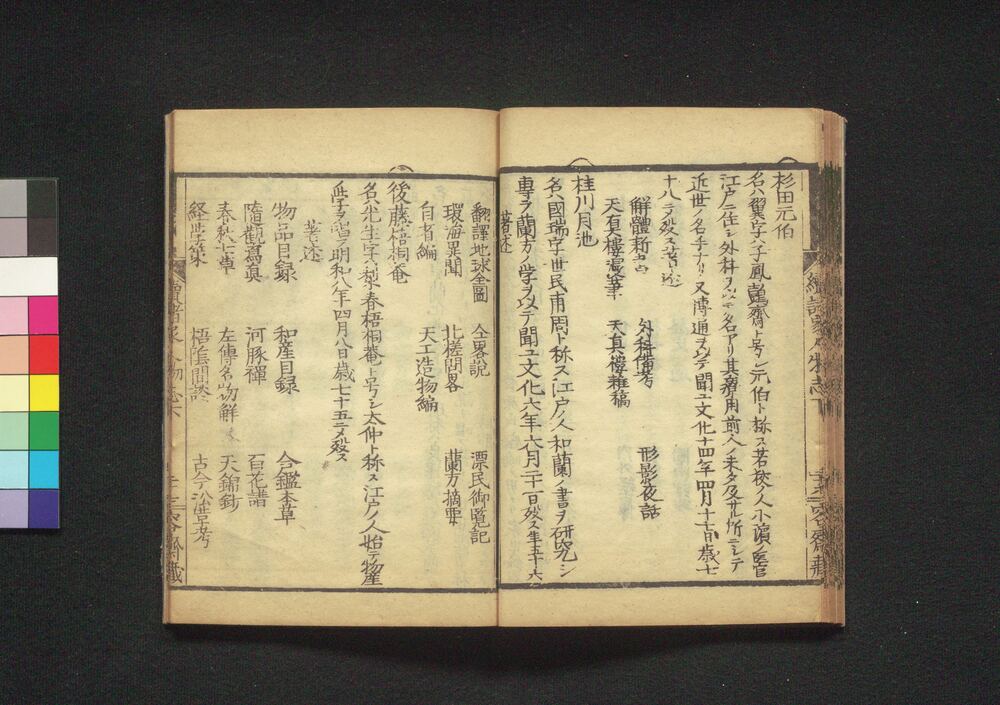 杉田元伯
名ハ翼字ハ子鳳鷧齋ト号シ元伯ト称ス若狹ノ人小濵ノ医官
江戸ニ住シ外科ヲ以テ名アリ其療用前人ノ未タ及サル所ニシテ
近世ノ名手ナリ又博通ヲ以テ聞ユ文化十四年四月十七日歳七
十八ニテ殁ス著述
解體新書 外科備考 形影夜話
天真樓漫筆 天真樓雜稿
桂川月池
名ハ國瑞字世民甫周ト称ス江戸ノ人和蘭ノ書ヲ研究シ
専ラ蘭方ノ学ヲ以テ聞ユ文化六年六月二十一日殁ス年五十六
著述
翻譯地球全圖 仝畧説 漂民御覧記
環海異聞 北槎聞畧 蘭方摘要
自省編 天工造物編
後藤梧桐菴
名ハ光生字ハ梨春梧桐菴ト号シ太仲ト称ス江戸ノ人始テ物産
学ヲ唱フ明和八年四月八日歳七十五ニテ殁ス
著述
物品目録 和産目録 合鑑本草
隨觀寫真 河豚禪 百花譜
春秋七草 左傳名物解 天錦鈔
経学策 梧窓間談 古今沿革考
續諸家人物志下